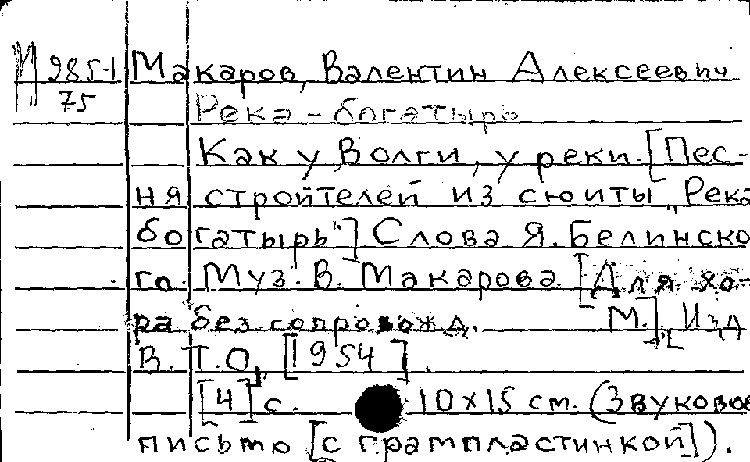 М 985-1 Макаров, Валентин Алексеевич
75
Река-богатырь
Как у Волги, у реки. [Пес-
ня строителей из сюиты „Река
богатырь"] Слова Я. Белинско
го. Муз. В. Макарова [Для хо-
ра без сопровожд. М.], [Изд
В. Т. О, [1954].
[4] с. 10x15 см. (Звуковое
письмо [с грампластинкой]).